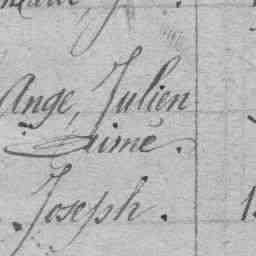 Ange, Julien
Aimé.
Joseph.